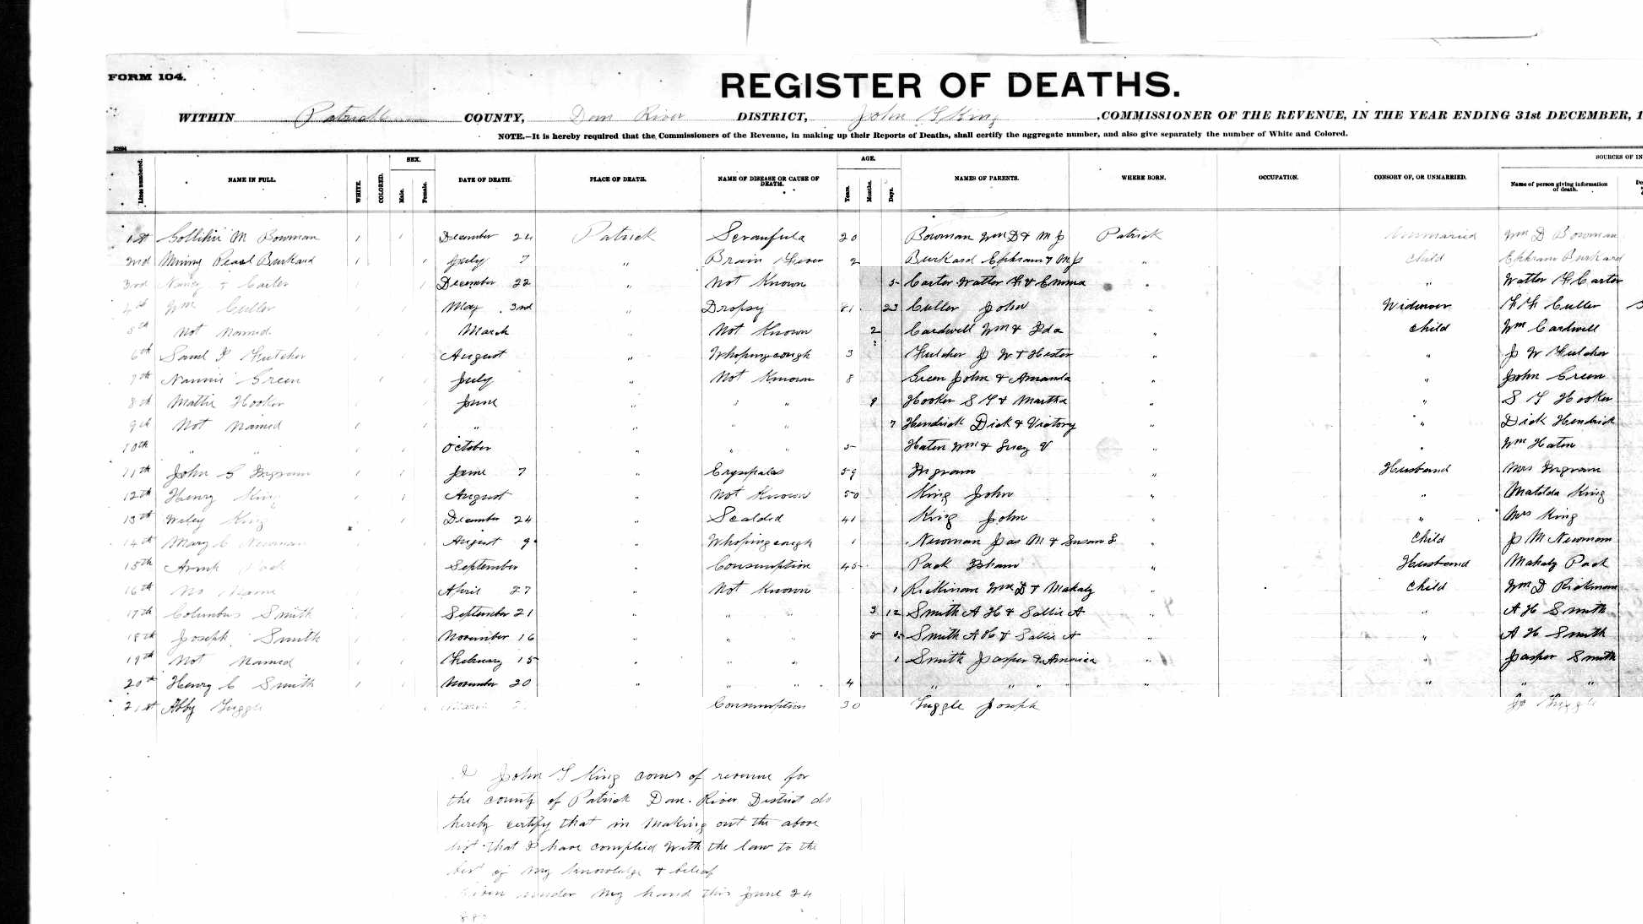 FORM 104.
REGISTER OF DEATHS.
WITHIN Patrick COUNTY, Dan River DISTRICT, John S King COMMISSIONER OF THE REVENUE, IN THE YEAR ENDING 31st DECEMBER, 1
NOTE.—It is hereby required that the Commissioners of the Revenue, in making up their Reports of Deaths, shall certify the aggregate number, and also give separately the number of White and Colored.
SEX. AGE. SOURCES OF IN
Lines numbered. NAME IN FULL. WHITE. COLORED. Male. Female. DATE OF DEATH. PLACE OF DEATH. NAME OF DISEASE OR CAUSE OF DEATH. Years. Months. Days. NAMES OF PARENTS. WHERE BORN. OCCUPATION. CONSORT OF, OR UNMARRIED. Name of person giving information of death.
1st M Bowman 1 1 December 24 Patrick Scraufula 20 Bowman Wm D & M J Patrick Unmaried Wm D Bowman
2nd Pearl Burkard 1 1 July 7 " Brain Fever 2 Burkard Ephram & M J " Child Ephram Burkard
3rd Carter December 22 " Not Known 5 Carter Walter H & Emma " " Walter H Carter
4th Wm Culler May 3rd " Dropsy 81 23 Culler John " Widower Culler
5th Not Named March " Not Known 2 Cardwell Wm & Ida " Child Wm Cardwell
6th Saml Fulcher August " Whopingcough 3 Fulcher J W & Hester " " J W Fulcher
7th Nannie Green July " Not Known 8 Green John & Amanda " " John Green
8th Mattie Hooker June " " " 9 Hooker S T & Martha " " S T Hooker
9th Not Named " " " " 7 Hendrick Dick & Victory " " Dick Hendrick
10th " " October " " " 5 Wm & Lucy V " " Wm
11th John S Ingram June 7 " Erysipalas 59 Ingram " Husband Mrs Ingram
12th Henry King August " Not Known 50 King John " " Matilda King
13th King December 24 " Scalded 41 King John " " Mrs King
14th Mary C Newman August 9 " Whopingcough 1 Newman Jas M & Susan S " Child J M Newman
15th Pack September " Consumption 45 Pack " Husband Mahaly Pack
16th No Name April 27 " Not Known 1 Rickman Wm D & Mahaly " Child Wm D Rickman
17th Columbus Smith September 21 " " " 3 12 Smith A H & Sallie A " " A H Smith
18th Joseph Smith November 16 " " " 5 Smith A H & Sallie A " " A H Smith
19th Not Named February 15 " " " 1 Smith Jasper & America " " Jasper Smith
20th Henry C Smith November 20 " " " 4 " " " " " "
21st Abby Tuggle Consumption 30 Tuggle Joseph Jo Tuggle
I John S King coms of revenue for
the county of Patrick Dan River District do
hereby certify that in making out the above
list that I have complied with the law to the
best of my knowledge & belief
Given under my hand this June 24